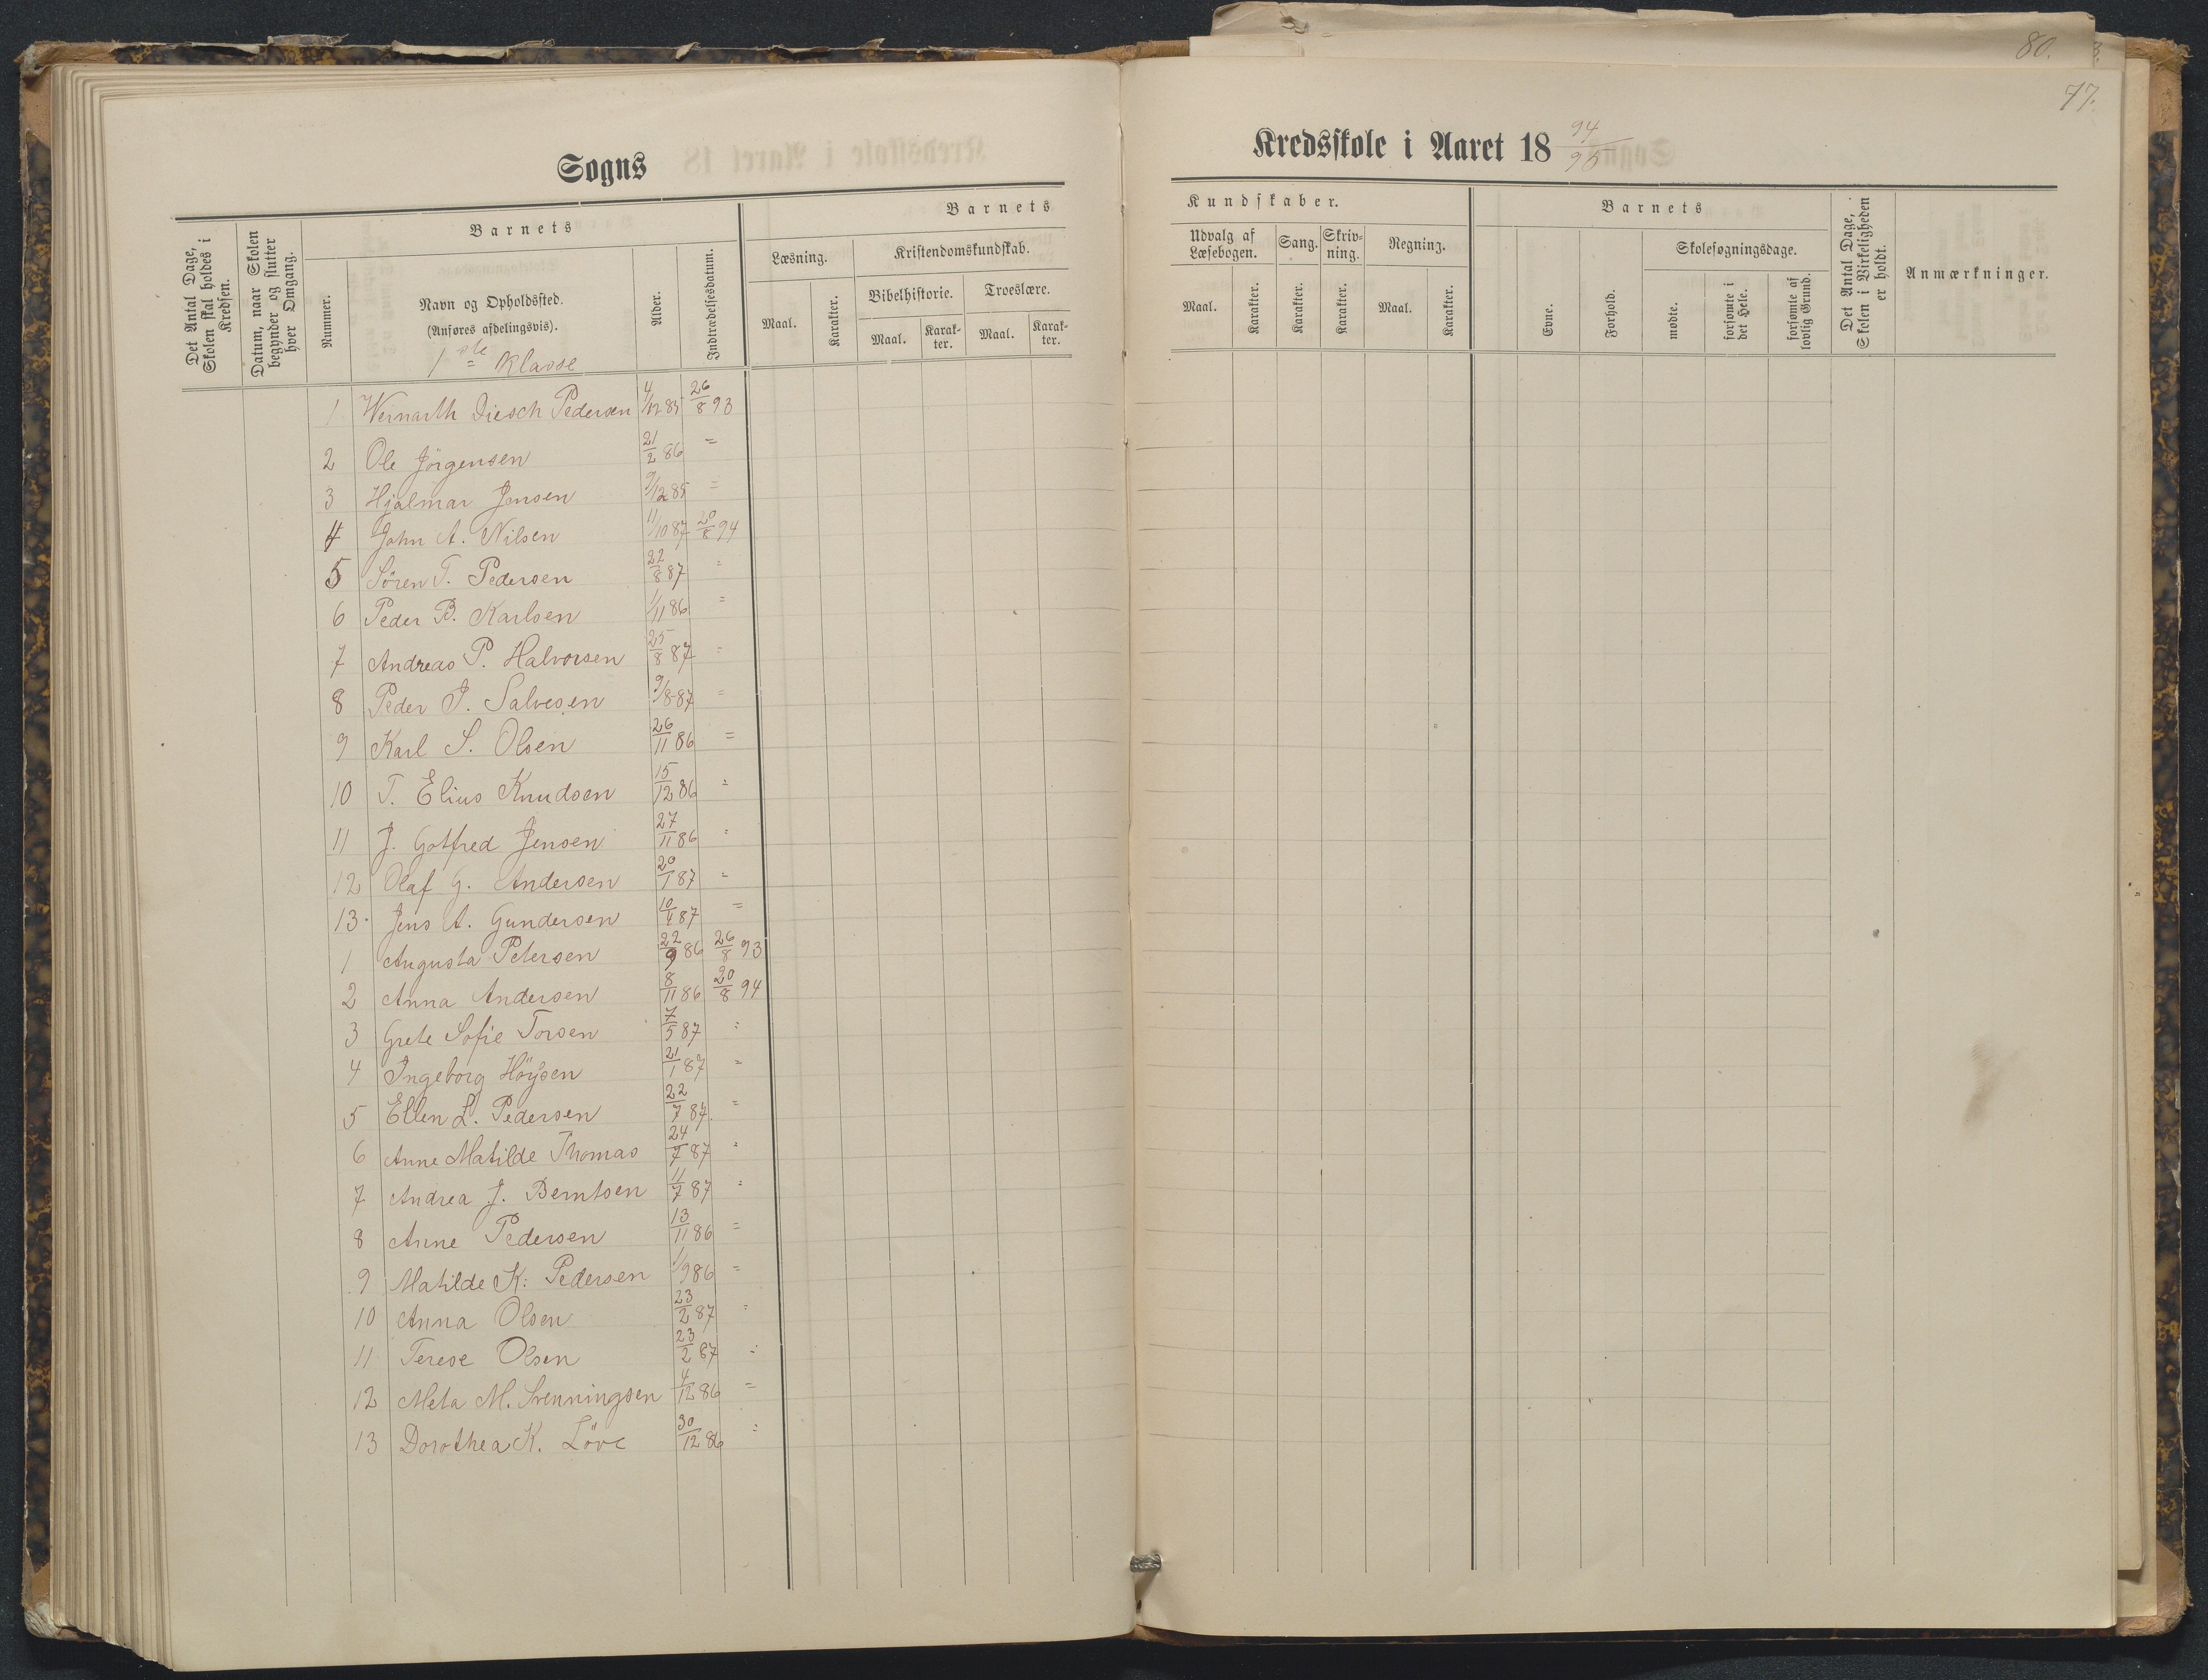 80.
77.
Sogns
Kredsskole i Aaret 18 94/95
Det Antal Dage, Skolen skal holdes i Kredsen.
Datum, naar Skolen begynder og slutter hver Omgang.
Barnets
Nummer.
Navn og Opholdssted.
(Anføres afdelingsvis).
1ste Klasse
Alder.
Indtrædelsesdatum.
Barnets
Læsning.
Maal.
Karakter.
Kristendomskundskab.
Bibelhistorie.
Maal.
Karakter.
Troeslære.
Maal.
Karakter.
Kundskaber.
Udvalg af Læsebogen.
Maal.
Karakter.
Sang.
Karakter.
Skrivning.
Karakter.
Regning.
Maal.
Karakter.
Barnets
Evne.
Forhold.
Skolesøgningsdage.
mødte.
forsømte i det Hele.
forsømte af lovlig Grund.
Det Antal Dage, Skolen i Virkeligheden er holdt.
Anmærkninger.
1 Wernarth Diesch Pedersen 4/12 85 26/8 93
2 Ole Jörgensen 21/2 86 =
3 Hjalmar Jensen 9/12 85 =
4 John A. Nilsen 11/10 87 20/8 94
5 Sören T. Pedersen 22/8 87 =
6 Peder B. Karlsen 1/11 86 =
7 Andreas P. Halvorsen 25/8 87 =
8 Peder J. Salvesen 9/8 87 =
9 Karl S. Olsen 26/11 86 =
10 T. Elius Knudsen 15/12 86 =
11 J. Gotfred Jensen 27/11 86 =
12 Olaf G. Andersen 20/1 87 =
13. Jens A. Gundersen 10/4 87 =
1 Augusta Petersen 22/9 86 26/8 93
2 Anna Andersen 8/11 86 20/8 94
3 Grete Sofie Torsen 7/5 87 =
4 Ingeborg Höysen 21/1 87 =
5 Ellen L. Pedersen 22/7 87. =
6 Anne Matilde Thomas 24/7 87 =
7 Andrea J. Berntsen 11/7 87 =
8 Anne Pedersen 13/11 86 =
9 Matilde K: Pedersen 1/9 86 =
10 Anna Olsen 23/2 87 =
11 Terese Olsen 23/2 87 =
12 Meta M. Svenningsen 4/12 86 =
13 Dorothea K. Löve 30/12 86 =